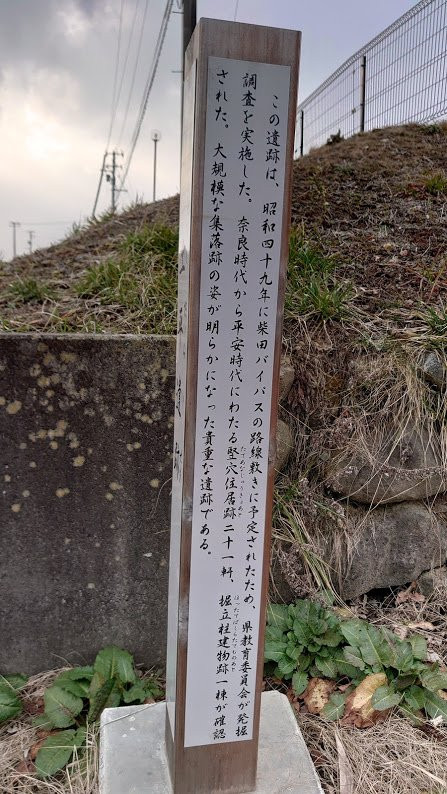 この遺跡は、昭和四十九年に柴田バイパスの路線敷きに予定されたため、県教育委員会が発掘
調査を実施した。奈良時代から平安時代にわたる竪穴住居跡二十一軒、掘立柱建物跡一棟が確認
された。大規模な集落跡の姿が明らかになった貴重な遺跡である。
たてあなじゅうきょあと
ほったてばしらたてものあと
遺跡